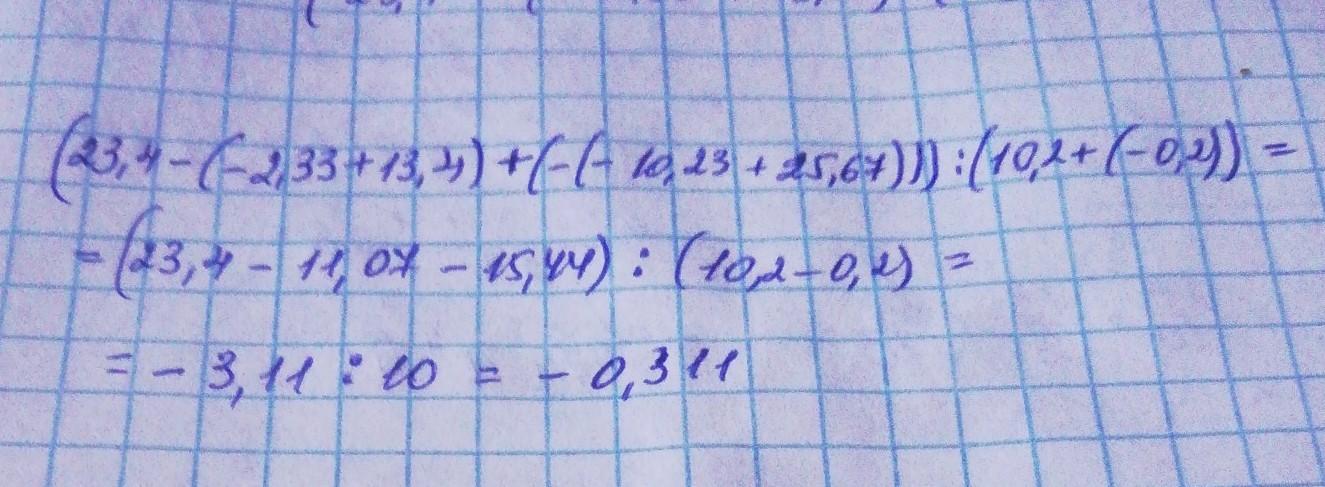 (23,4-(-2,33+13,4)+(-(-10,23+25,67))):(10,2+(-0,2))=
=(23,4-11,07-15,44):(10,2-0,2)=
=-3,11:10=-0,311